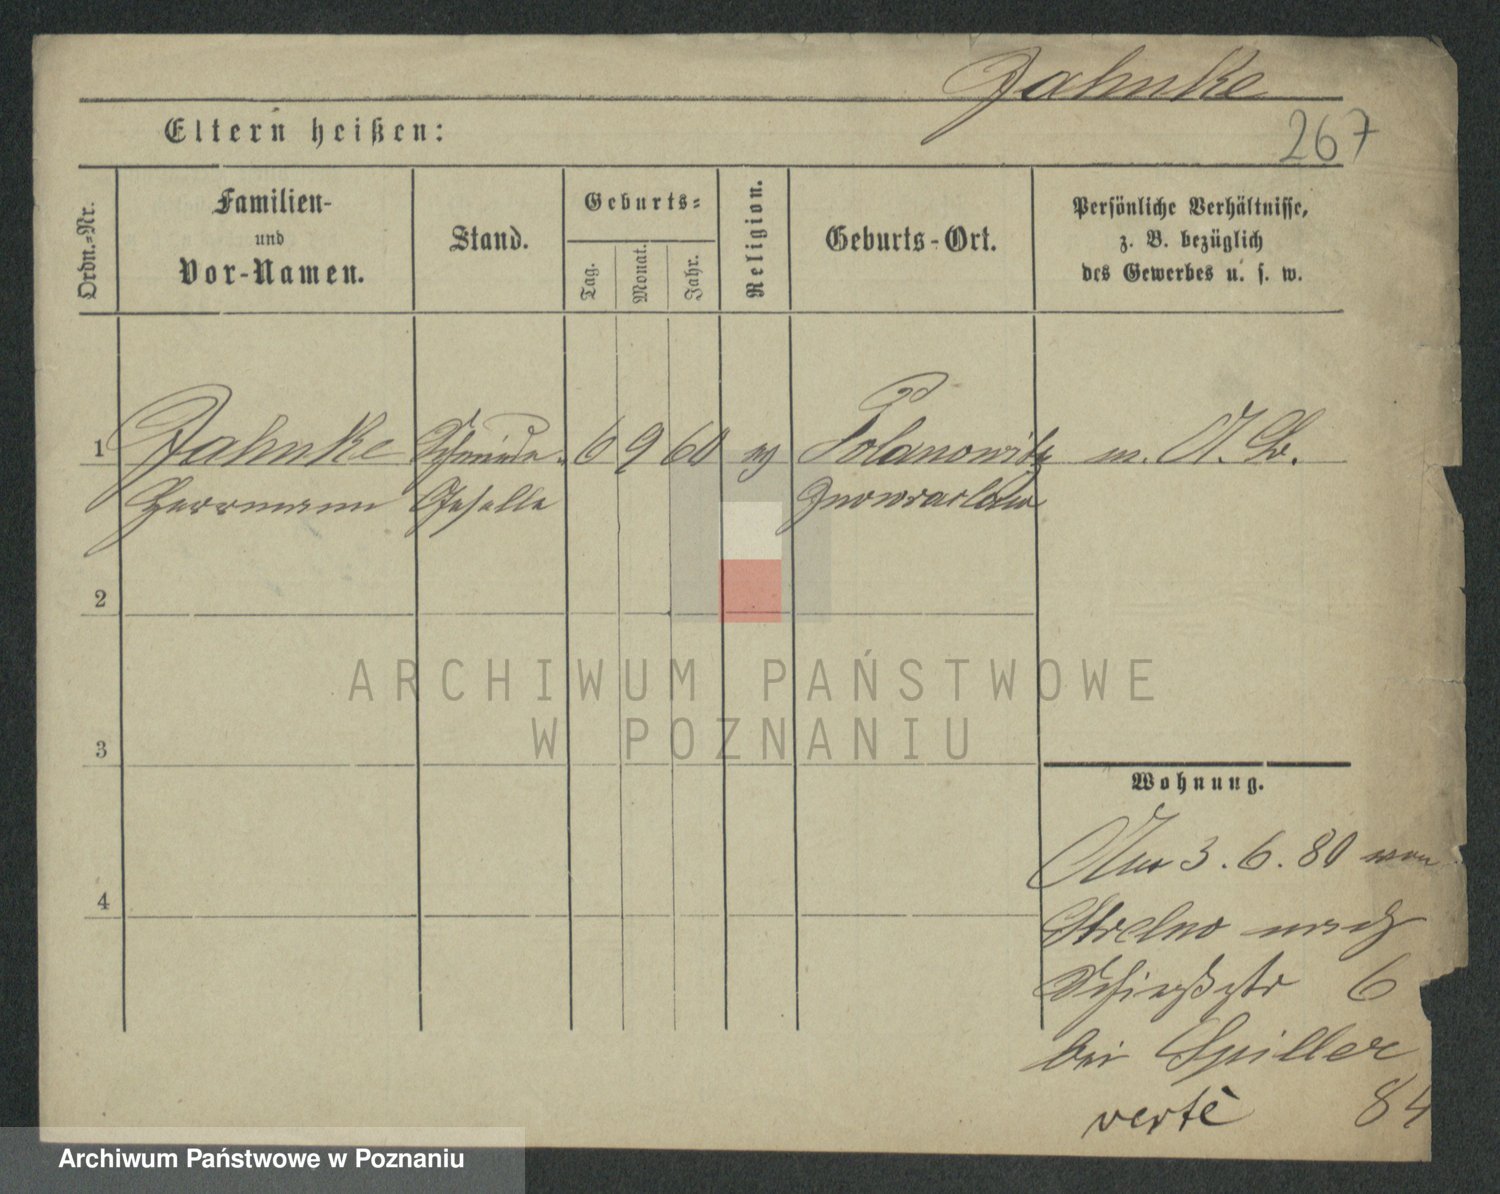 Jahnke
267
Eltern heißen:
Ordn.-Nr.
Familien-
und
Vor-Namen.
Stand.
Geburts-
Tag.
Monat.
Jahr.
Religion.
Geburts-Ort.
Persönliche Verhältnisse,
z. B. bezüglich
des Gewerbes u. s. w.
1 Jahnke 6 9 60 m. A. B.
Herrmann Geselle Inowraclaw
2
3
4
ARCHIWUM PAŃSTWOWE
W POZNANIU
Wohnung.
3. 6. 80 von
Strelno nach
Schießstr 6
bei Spiller
verte 84
Archiwum Państwowe w Poznaniu